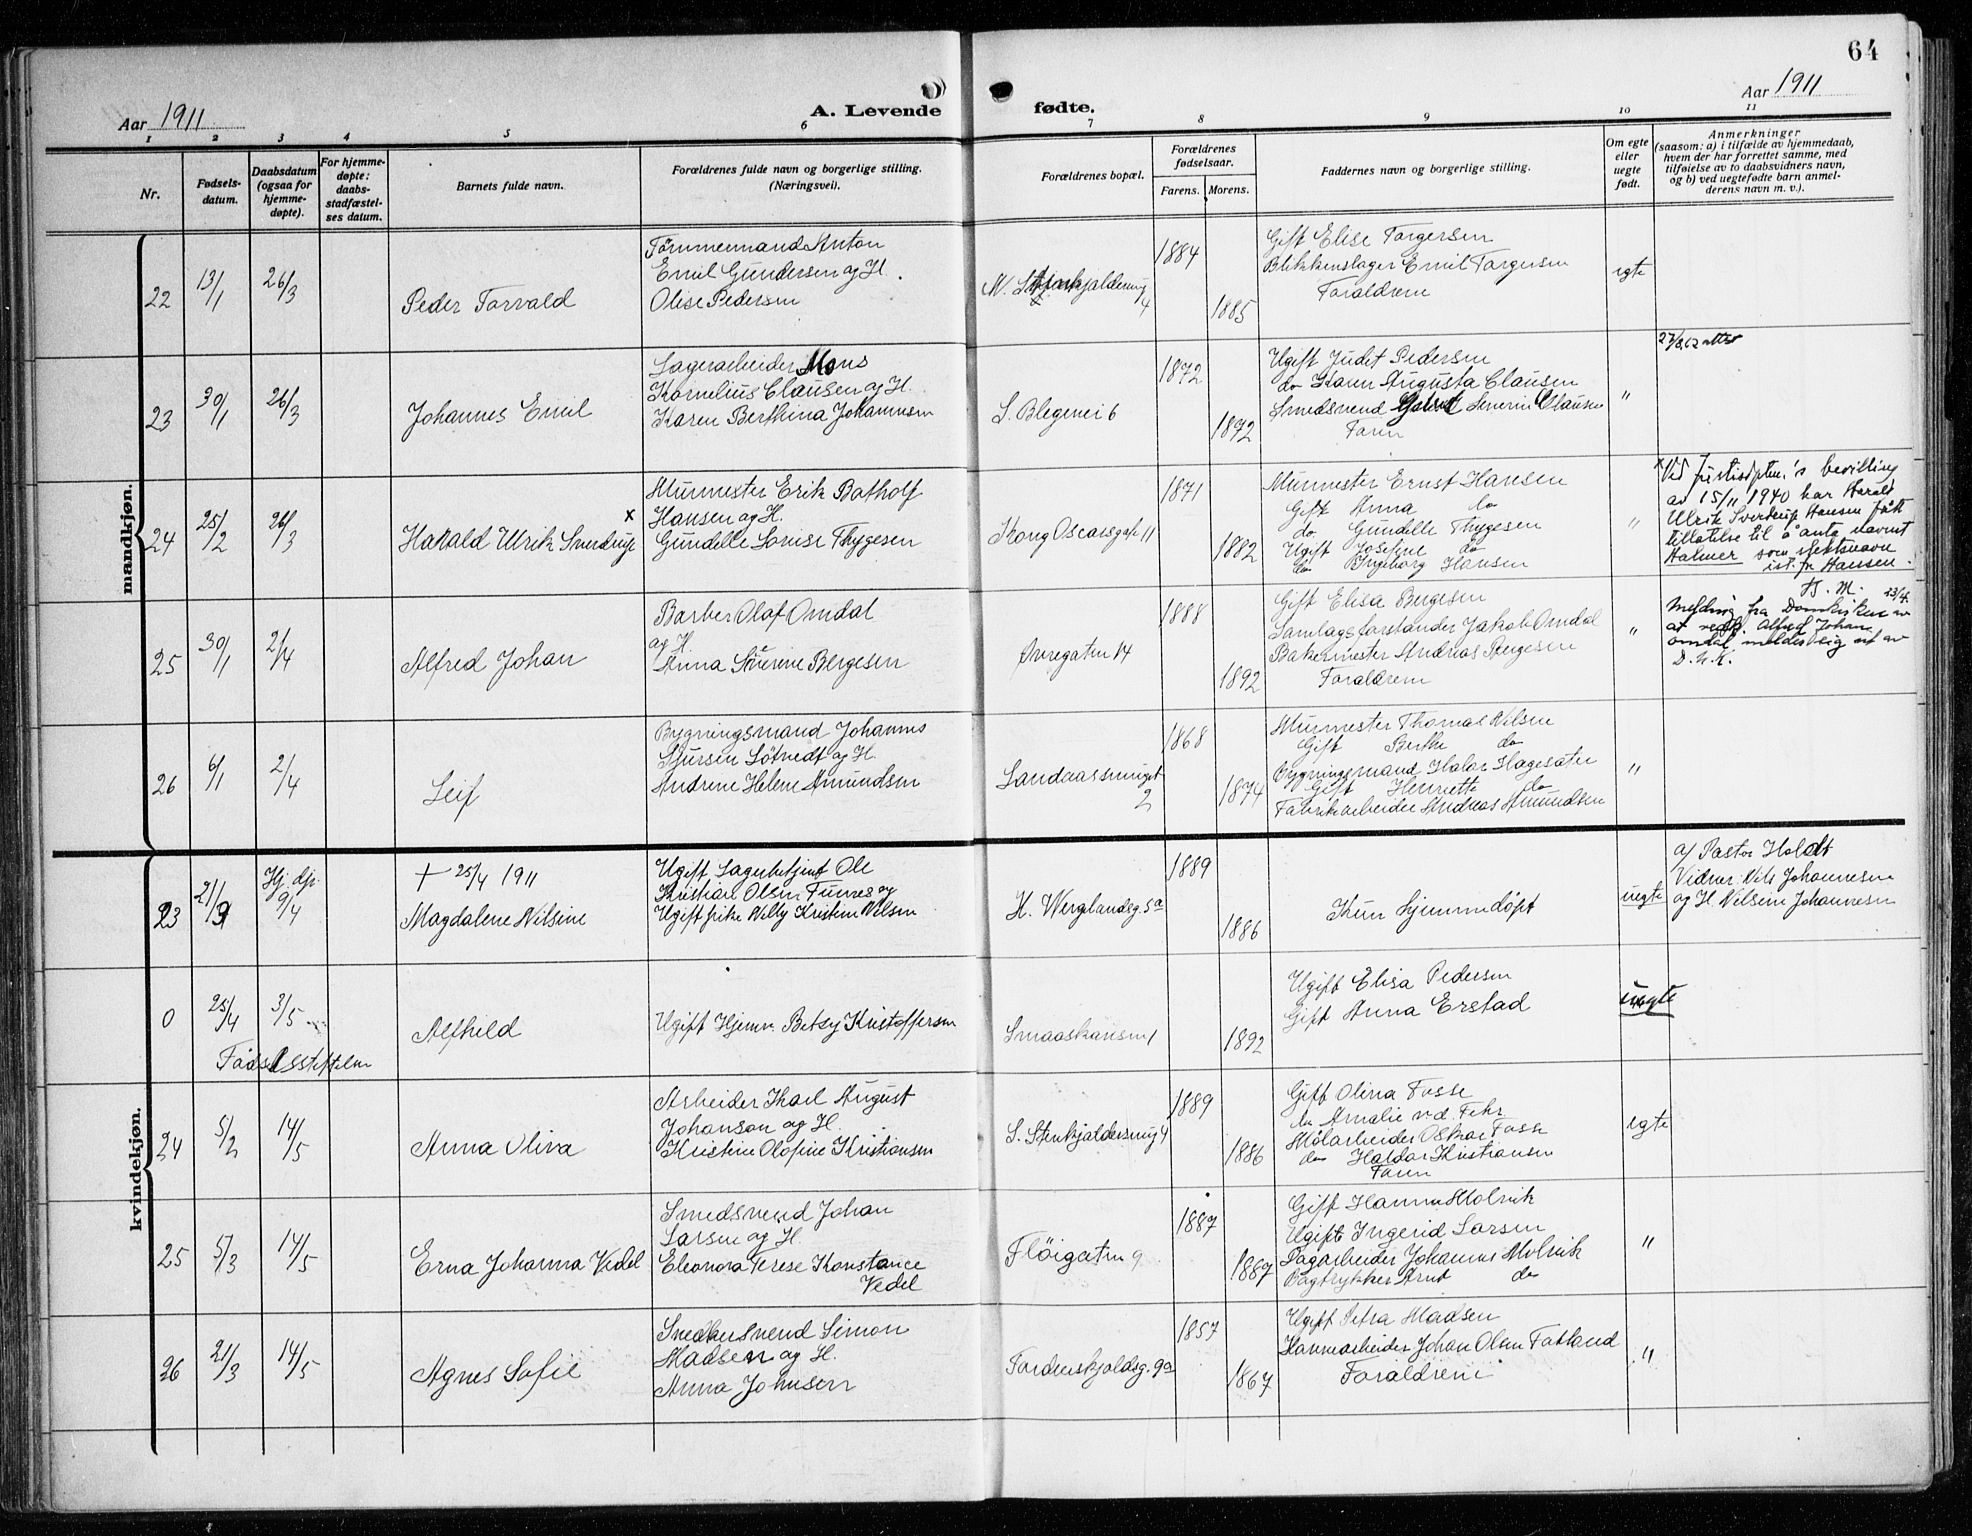 64
Aar 1911
A. Levende
fødte.
Aar 1911
1 2 3 4 5 6 7 8 9 10 11
Nr.
Fødsels-
datum.
Daabsdatum
(ogsaa for
hjemme-
døpte).
For hjemme-
døpte:
daabs-
stadfæstel-
ses datum.
Barnets fulde navn.
Forældrenes fulde navn og borgerlige stilling.
(Næringsvei).
Forældrenes bopæl.
Forældrenes
fødselsaar.
Farens. Morens.
Faddernes navn og borgerlige stilling.
Om egte
eller
uegte
født.
Anmerkninger
(saasom: a) i tilfælde av hjemmedaab,
hvem der har forrettet samme, med
tilføielse av to daabsvidners navn,
og b) ved uegtefødte barn anmel-
derens navn m. v.).
mandkjøn.
22
13/1
26/3
Peder Torvald
Tömmermand Anton
Emil Gundersen og H.
Olise Pedersen
4
1884
1885
Gift Elise Torgersen
Blikkenslager Emil Torgersen
Forældrene
egte
23
30/1
26/3
Johannes Emil
Lagerarbeider Mons
Kornelius Clausen og H.
Karen Berthina Johannesen
S. Blegevei 6
1872
1892
Ugift Judit Pedersen
do Karen Augusta Clausen
Smedsvend Severin Clausen
Faren
"
24
25/2
26/3
Harald Ulrik Sverdrup x
Murmester Erik Botholf
Hansen og H.
Gundelle Lovise Thygesen
Kong Oscarsgate 11
1871
1882
Murmester Ernst Hansen
Gift Anna do
do. Gundelle Thygesen
Ugift Josefine do
do Ingeborg Hansen
"
x Ved Justisdptm.'s bevilling
av 15/11 1940 har Harald
Ulrik Sverdrup Hansen fått
tillatelse til å anta navnet
Halmer som slektsnavn
ist. for Hansen.
25
30/1
2/4
Alfred Johan
Barber Olaf Omdal
og H.
Anna Severine Bergesen
Øvregaten 14
1888
1892
Gift Elisa Bergesen
Samlagsforstander Jakob Omdal
Bakermester Andreas Bergesen
Forældrene
"
Melding fra Domkirken
Alfred Johan
Omdal meldt sig ut av
D. n. K.
26
6/1
2/4
Leif
Bygningsmand Johannes
Sjursen Søtvedt og H.
Andrene Helene Amundsen
Landaassmuget
2
1868
1874
Murmester Thomas Nilsen
Gift Berthe do
Bygningsmand Halvor Hagesæter
Gift Henriette do
Fabrikarbeider Andreas Amundsen
"
kvindekjøn.
23
Hj. dp.
9/4
+ 25/4 1911
Magdalene Nilsine
Ugift Lagerbetjent Ole
Kristian Olsen Tunes og
Ugift frk. Nelly Kristine Nilsen
H. Werglandsg. 5a
1889
1886
Kun hjemmedøpt
uegte
af Pastor Holdt
Vidner: Nils Johannesen
og H. Nilsine Johannesen
0
25/4
3/5
Fødselsstiftelsen
Alfhild
Ugift Hjemv. Betsy Kristoffersen
Smaaskansen 1
1892
Ugift Elisa Pedersen
Gift Anna Erstad
uegte
24
5/2
14/5
Anna Oliva
Arbeider Karl August
Johanson og H.
Kristine Olofine Kristiansen
S. Stenkjeldersmug 4
1889
1886
Gift Olina Fosse
do Amalie v.d. Fehr
Mølarbeider Oskar Fosse
do Haldor Kristiansen
Faren
egte
25
5/3
14/5
Erna Johanna Vedel
Smedsvend Johan
Larsen og H.
Eleonora Terese Konstance
Vedel
Fløigaten 9
1887
1887
Gift Hanna Molvik
Ugift Ingerid Larsen
Dagarbeider Johannes Molvik
Bogtrykker Arnt do
"
26
21/3
14/5
Agnes Sofie
Snedkersvend Simon
Madsen og H.
Anna Johnsen
Tordenskjoldsg. 9a
1857
1867
Ugift Petra Madsen
Havnearbeider Johan Olsen Fatland
Forældrene
"